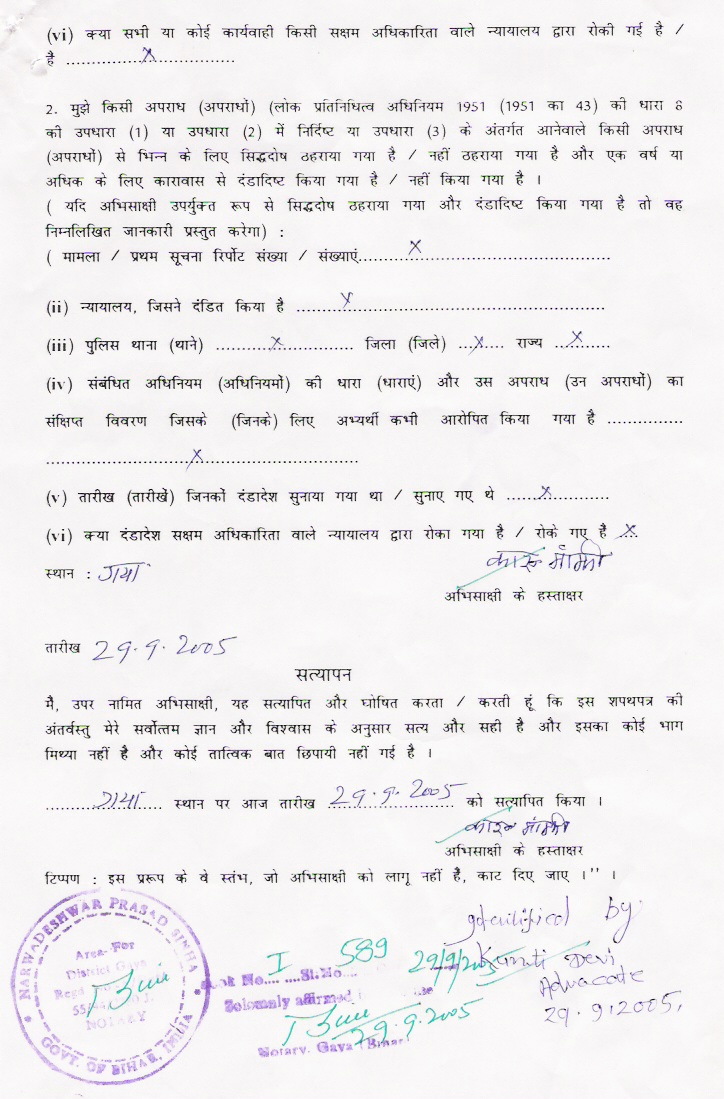 (vi) क्या सभी या कोई कार्यवाही किसी सक्षम अधिकारिता वाले न्यायालय द्वारा रोकी गई है /
है ..................x....................
2. मुझे किसी अपराध (अपराधों) (लोक प्रतिनिधित्व अधिनियम 1951 (1951 का 43) की धारा 8
की उपधारा (1) या उपधारा (2) में निर्दिष्ट या उपधारा (3) के अंतर्गत आनेवाले किसी अपराध
(अपराधों) से भिन्न के लिए सिद्धदोष ठहराया गया है / नहीं ठहराया गया है और एक वर्ष या
अधिक के लिए कारावास से दंडादिष्ट किया गया है / नहीं किया गया है ।
( यदि अभिसाक्षी उपर्युक्त रूप से सिद्धदोष ठहराया गया और दंडादिष्ट किया गया है तो वह
निम्नलिखित जानकारी प्रस्तुत करेगा) :
( मामला / प्रथम सूचना रिर्पोट संख्या / संख्याएं..........x..............................
(ii) न्यायालय, जिसने दंडित किया है ..........x..................................................
(iii) पुलिस थाना (थाने) ............x............... जिला (जिले) ...x.... राज्य ...x.......
(iv) संबंधित अधिनियम (अधिनियमों) की धारा (धाराएं) और उस अपराध (उन अपराधों) का
संक्षिप्त विवरण जिसके (जिनके) लिए अभ्यर्थी कभी आरोपित किया गया है ................
.................................x....................................
(v) तारीख (तारीखें) जिनकों दंडादेश सुनाया गया था / सुनाए गए थे .......x.............
(vi) क्या दंडादेश सक्षम अधिकारिता वाले न्यायालय द्वारा रोका गया है / रोके गए है .x.
स्थान : गया
कारू मांझी
अभिसाक्षी के हस्ताक्षर
तारीख 29.9.2005
सत्यापन
मै, उपर नामित अभिसाक्षी, यह सत्यापित और घोषित करता / करती हूं कि इस शपथपत्र की
अंतर्वस्तु मेरे सर्वोत्तम ज्ञान और विश्वास के अनुसार सत्य और सही है और इसका कोई भाग
मिथ्या नहीं है और कोई तात्विक बात छिपायी नहीं गई है ।
..........गया..... स्थान पर आज तारीख 29.9.2005 को सत्यापित किया ।
मांझी
अभिसाक्षी के हस्ताक्षर
टिप्पण : इस प्ररूप के वे स्तंभ, जो अभिसाक्षी को लागू नहीं है, काट दिए जाए ।'' ।
NARWADESHWAR PRASAD SINHA
Area-For
District Gaya
NOTARY
GOVT. OF BIHAR, INDIA
Book No.... I .....Sl.No.... 589
29/9/2005
Solemnly affirmed
29.9.2005
Notary. Gaya (Bihar)
by
Kunti Devi
Advocate
29.9.2005.